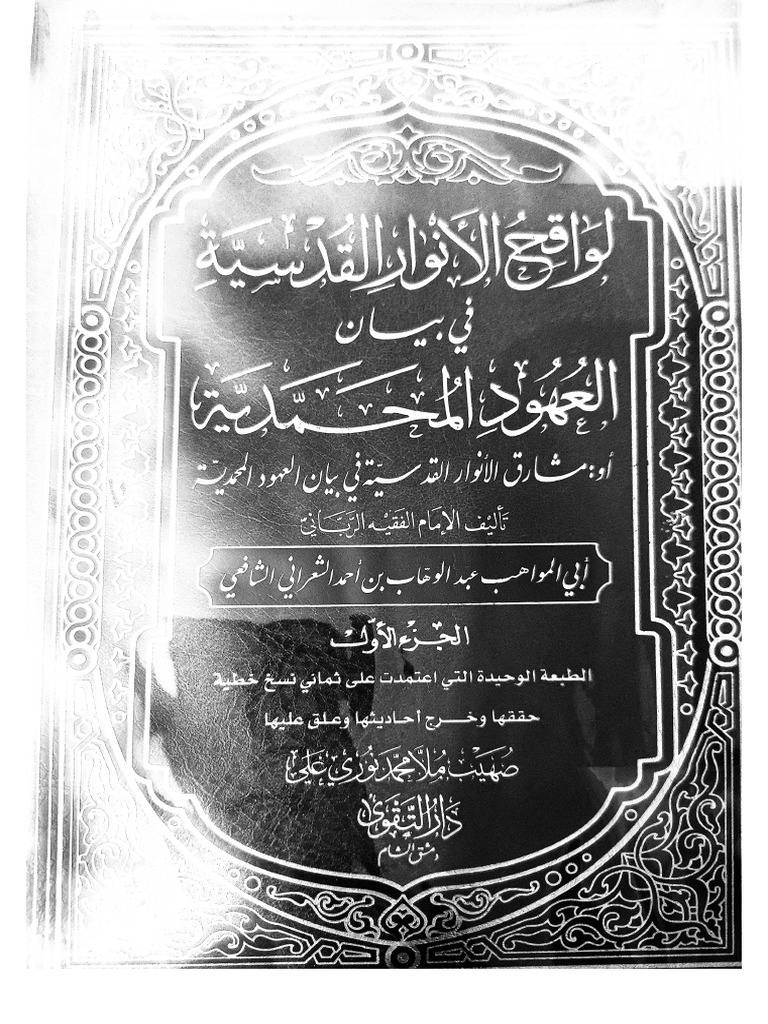 لَوَاقِحُ الأَنْوَارِ القُدْسِيَّةِ
في بيان
العُهُودِ المُحَمَّدِيَّة
أو: مشارق الأنوار القدسيّة في بيان العهود المحمديّة
تأليف الإمام الفقيه الرَّبَّانيّ
أبي المواهب عبد الوهاب بن أحمد الشعراني الشافعي
الجزء الأوّل
الطبعة الوحيدة التي اعتمدت على ثماني نسخ خطية
حققها وخرج أحاديثها وعلق عليها
صُهَيْب مُلّا محمّد نوري علي
دَارُ التَّقْوَى
دمشق الشام